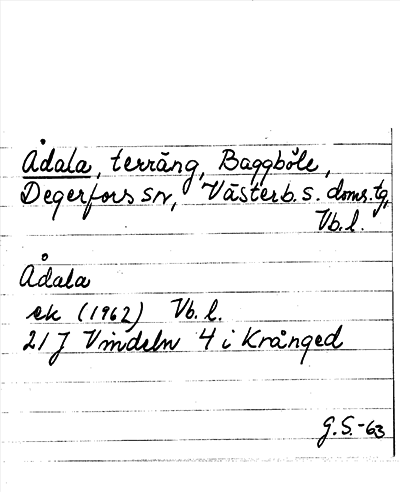 Ådala, terräng, Baggböle,
Degerfors sn, Västerb. s. doms.tg,
Vb.l.
Ådala
ek (1962) Vb.l.
21J Vindeln 4 i Krånged
G.S.-63